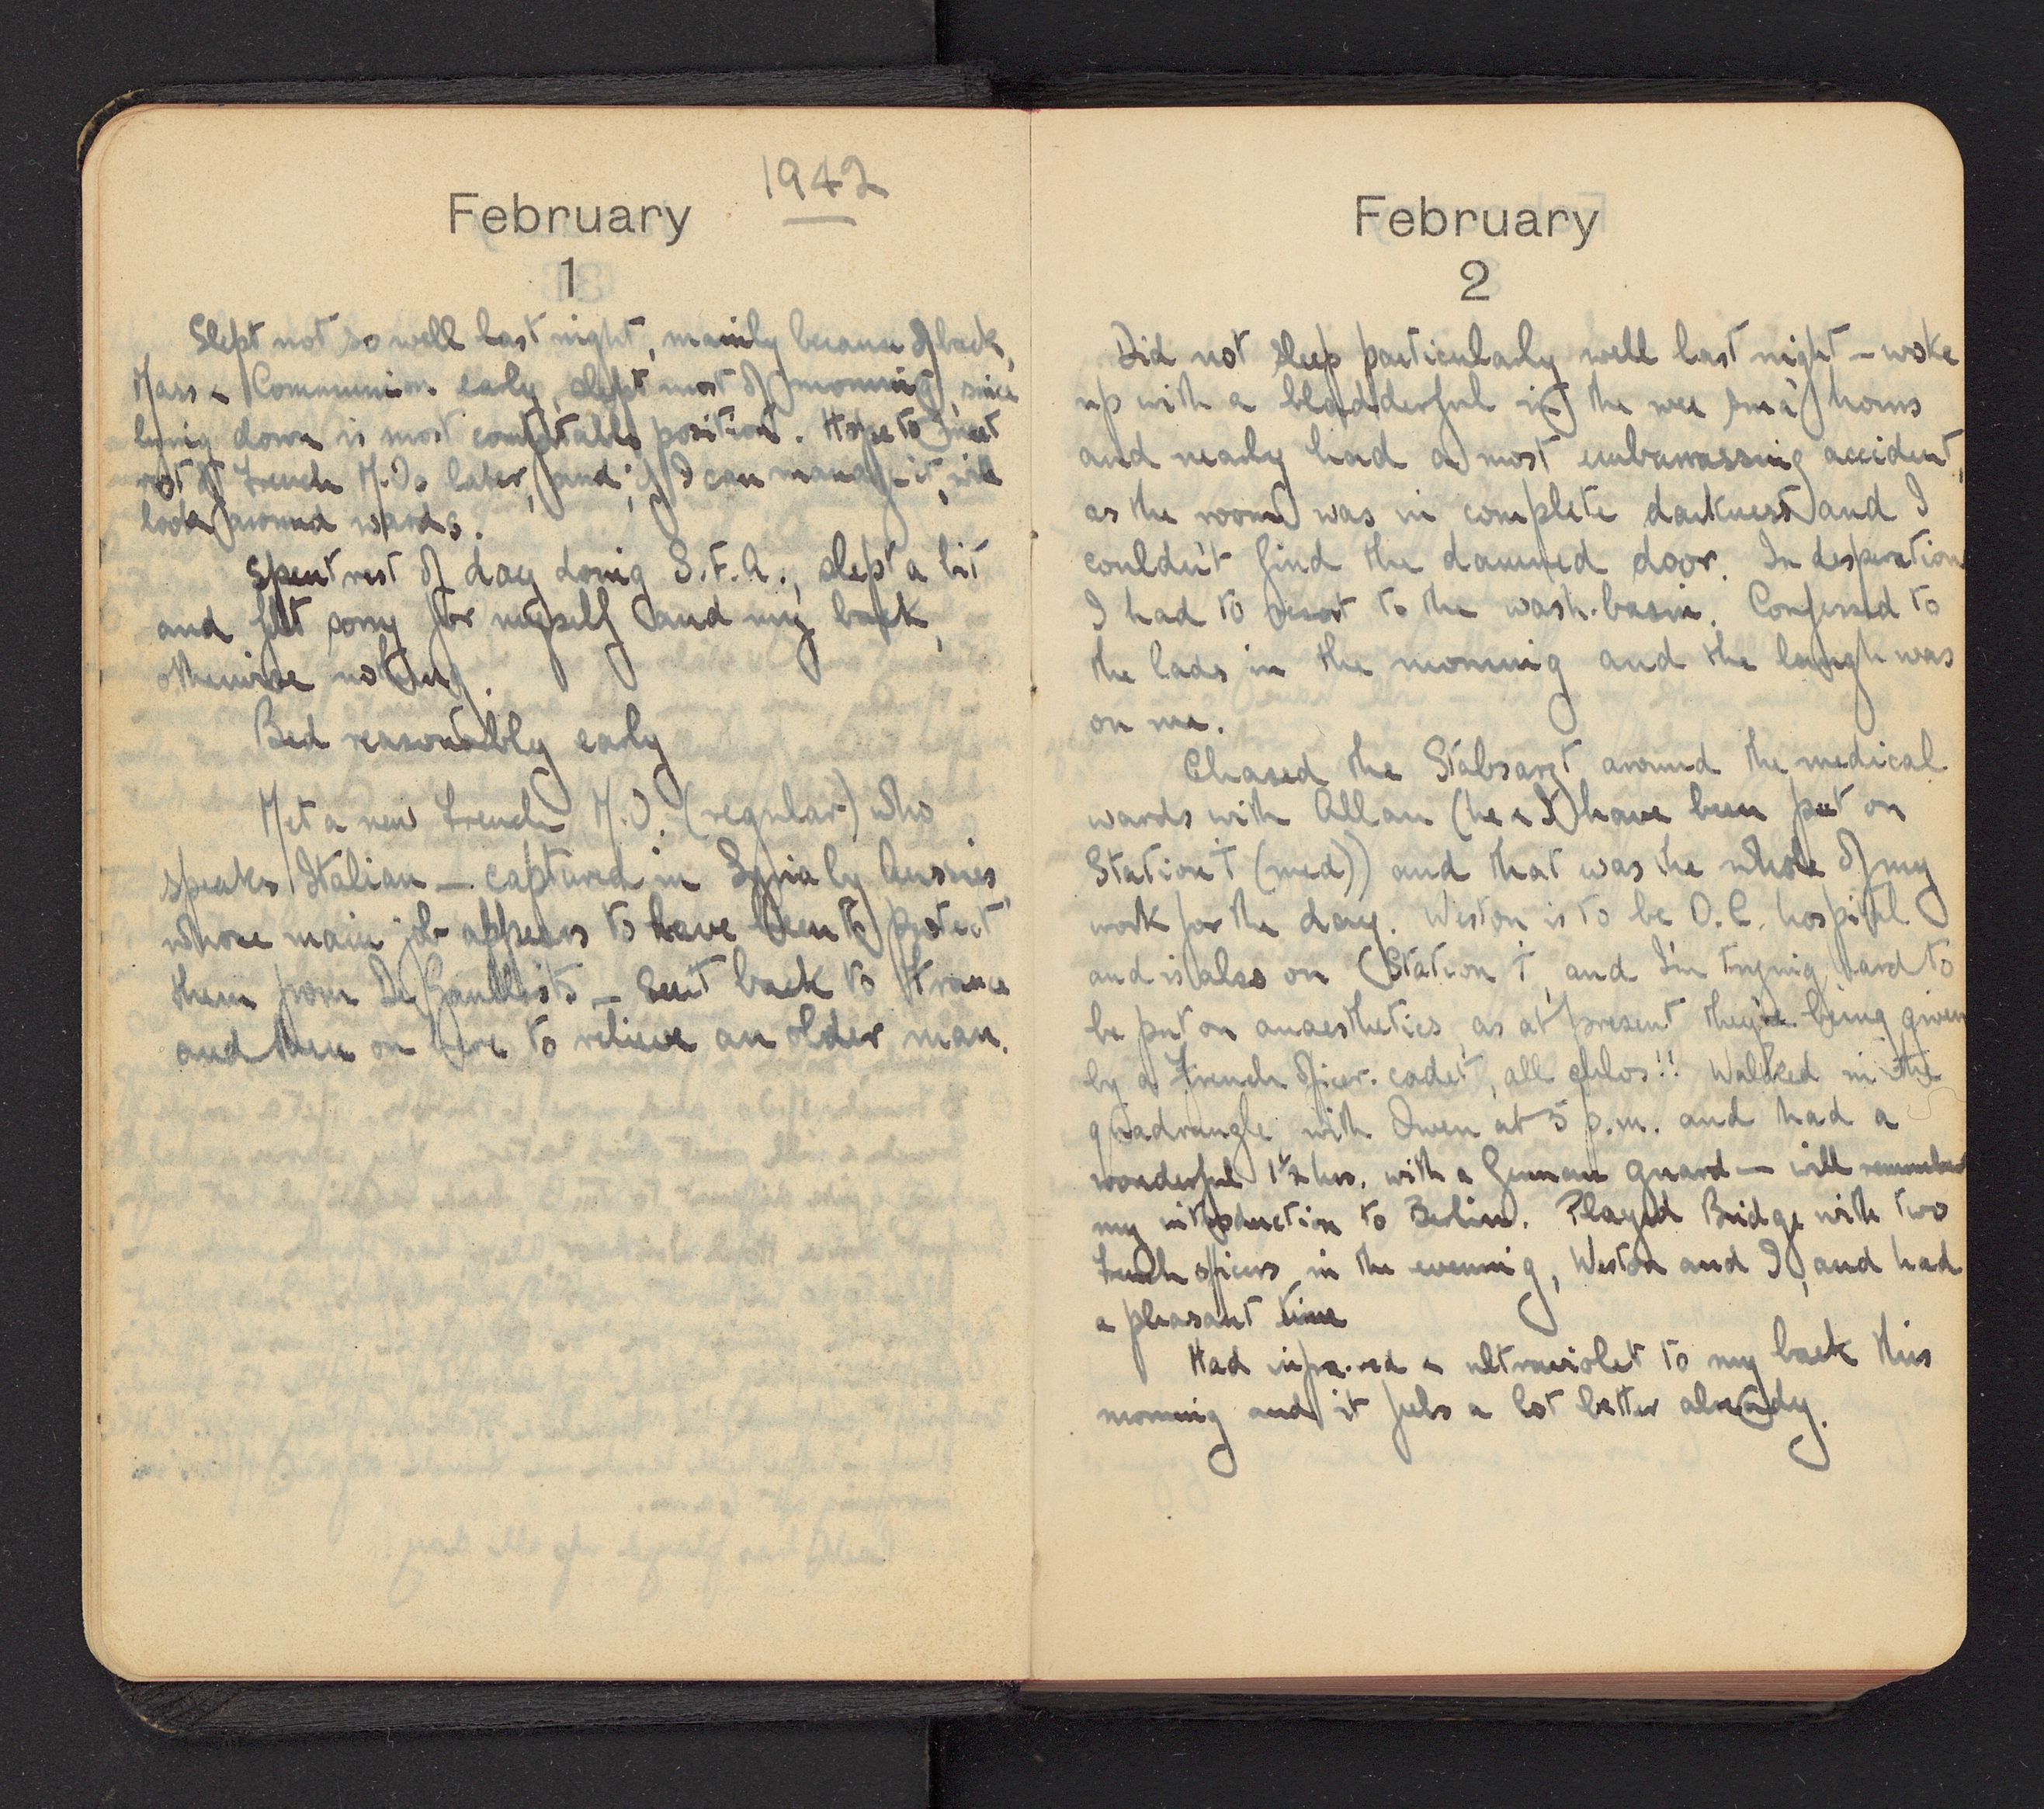 1942
February
1
Slept not so well last night, mainly because of back,
Mass & Communion early, slept most of morning, since
lying down is most comfortable position. Hope to meet
rest of French M.Os later, and, if I can manage it, will
look around wards.
Spent rest of day doing S.F.A., slept a bit
and felt sorry for myself and my back,
otherwise nothing.
Bed reasonably early
Met a new French M.O. (regular) who
speaks Italian — captured in Syria by Aussies,
whose main job appears to have been to protect
them from De Gaullists — Sent back to France
and then on here to relieve an older man.
February
2
Did not sleep particularly well last night — woke
up with a bladderful in the wee sma' hours
and nearly had a most embarrassing accident,
as the room was in complete darkness and I
couldn't find the damned door. In desperation
I had to resort to the wash-basin. Confessed to
the lads in the morning and the laugh was
on me.
Chased the Stabsarzt around the medical
wards with Allan (he & I have been put on
Station I (med)) and that was the whole of my
work for the day. Weston is to be O.C. hospital
and is also on Station I, and I'm trying hard to
be put on anaesthetics, as at present they're being given
by a French officer-cadet, all !! Walked in the
quadrangle with Owen at 5 p.m. and had a
wonderful 1½ hrs. with a German guard — will remember
my introduction to Berlin. Played Bridge with two
French officers in the evening, Weston and I, and had
a pleasant time
Had infra-red & ultraviolet to my back this
morning and it feels a lot better already.